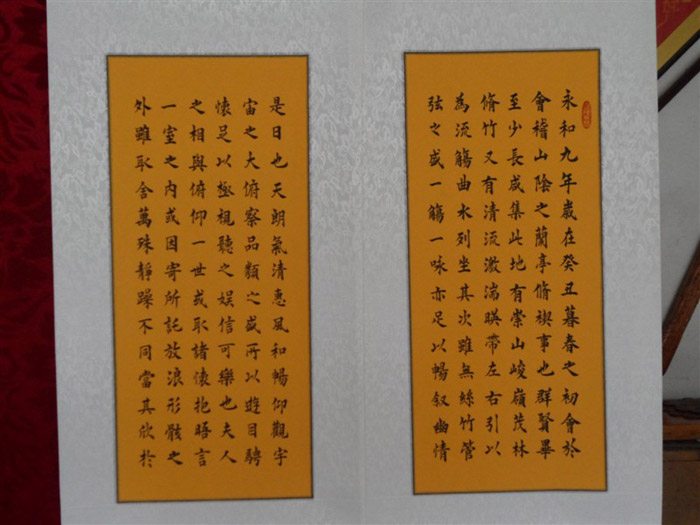 永和九年歲在癸丑暮春之初會於
會稽山陰之蘭亭脩禊事也群賢畢
至少長咸集此地有崇山峻嶺茂林
脩竹又有清流激湍暎帶左右引以
為流觴曲水列坐其次雖無絲竹管
弦之盛一觴一咏亦足以暢叙幽情
是日也天朗氣清惠風和暢仰觀宇
宙之大俯察品類之盛所以遊目騁
懷足以極視聽之娛信可樂也夫人
之相與俯仰一世或取諸懷抱晤言
一室之内或因寄所託放浪形骸之
外雖取舍萬殊靜躁不同當其欣於